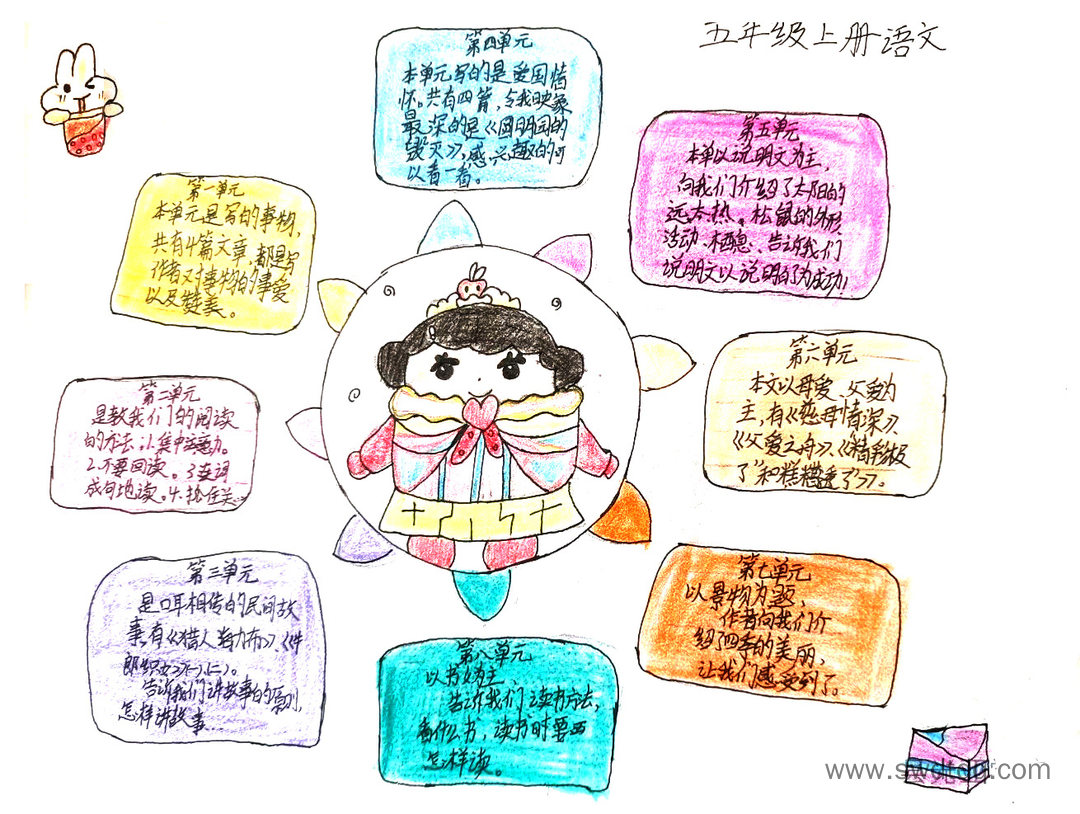 五年级上册语文
第一单元
本单元是写的事物,
共有4篇文章,都是写
作者对事物的事爱
以及赞美。
第二单元
是教我们的阅读
的方法:1.集中注意力。
2.不要回读。3连词
成句地读。4.抓住关
第三单元
是口耳相传的民间故
事,有《猎人海力布》、《牛
郎织女》(一)、(二)。
告诉我们讲故事的原则,
怎样讲故事...
第四单元
本单元写的是爱国情
怀。共有四篇,令我映象
最深的是《圆明园的
毁灭》,感兴趣的可
以看一看。
第五单元
本单以说明文为主,
向我们介绍了太阳的
远、大、热。松鼠的外形
活动、栖息、告诉我们
说明文以说明了为成功!
第六单元
本文以母爱、父爱为
主,有《慈母情深》、
《父爱之舟》、《精彩极
了"和糟糟透了"》。
第七单元
以景物为题,
作者向我们介
绍了四季的美丽,
让我们感受到了。
第八单元
以书文为主,
告诉我们读书方法,
看什么书,读书时要
怎样读。
www.swdtdt.com